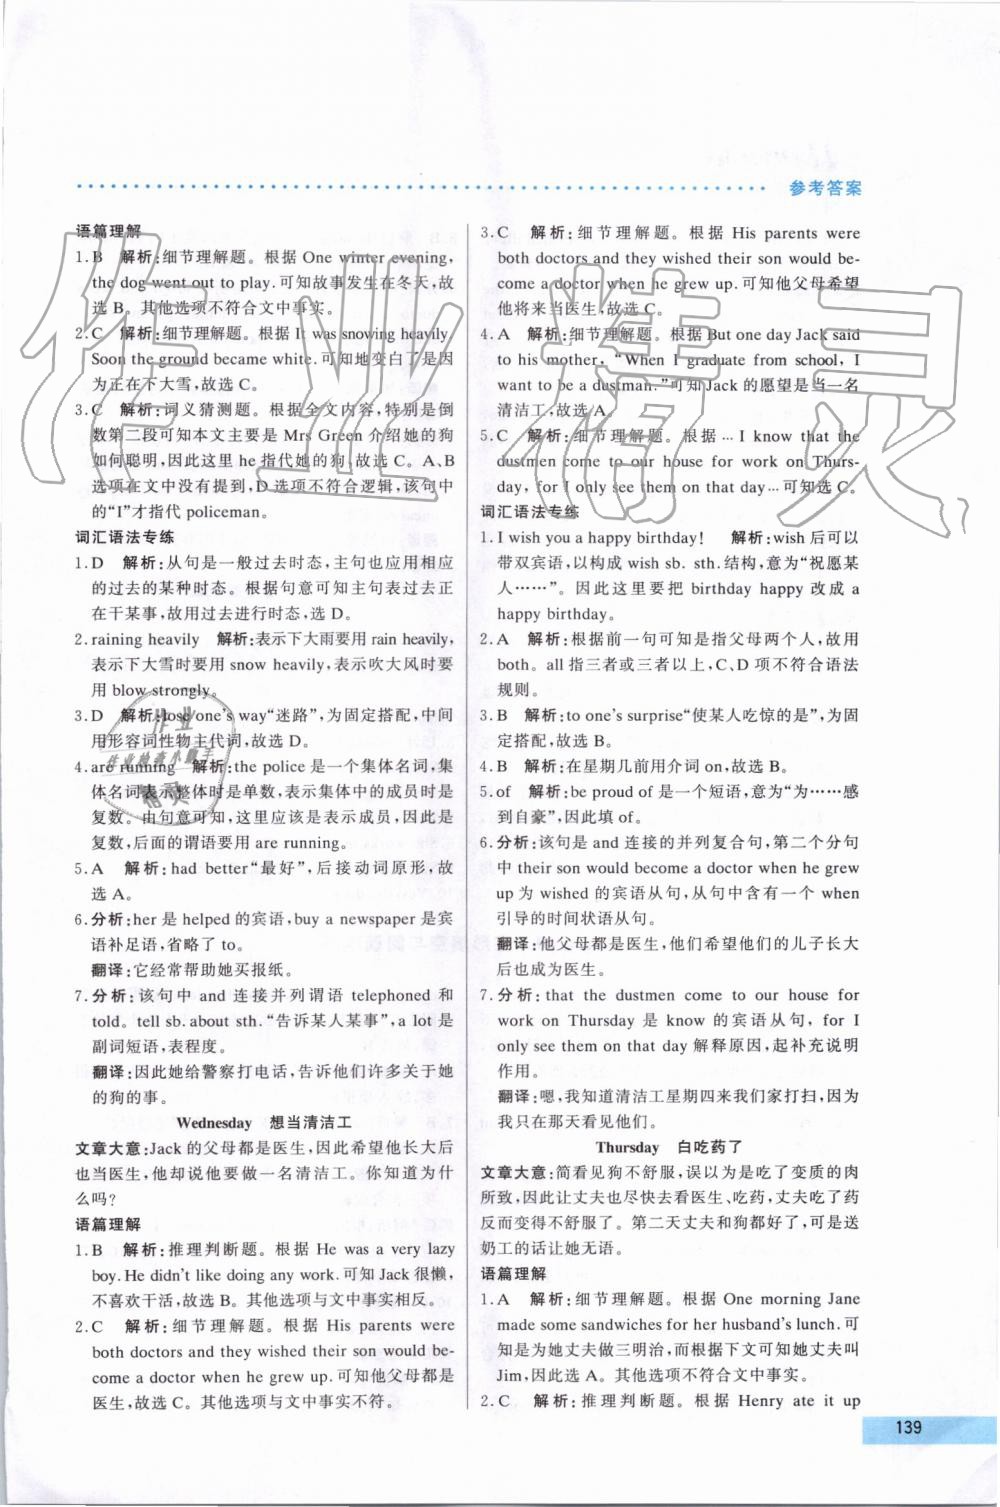 参考答案
语篇理解
1.B 解析:细节理解题。根据 One winter evening,
the dog went out to play.可知故事发生在冬天,故
选 B。其他选项不符合文中事实。
2.C 解析:细节理解题。根据 It was snowing heavily.
Soon the ground became white.可知地变白了是因
为正在下大雪,故选 C。
3.C 解析:词义猜测题。根据全文内容,特别是倒
数第二段可知本文主要是 Mrs Green 介绍她的狗
如何聪明,因此这里 he 指代她的狗,故选 C。A、B
选项在文中没有提到,D 选项不符合逻辑,该句中
的“I”才指代 policeman。
词汇语法专练
1.D 解析:从句是一般过去时态,主句也应用相应
的过去的某种时态。根据句意可知主句表过去正
在干某事,故用过去进行时态,选 D。
2.raining heavily 解析:表示下大雨要用 rain heavily,
表示下大雪时要用 snow heavily,表示吹大风时要
用 blow strongly。
3.D 解析:lose one's way“迷路”,为固定搭配,中间
用形容词性物主代词,故选 D。
4.are running 解析:the police 是一个集体名词,集
体名词表示整体时是单数,表示集体中的成员时是
复数。由句意可知,这里应该是表示成员,因此用
复数,后面的谓语要用 are running.
5.A 解析:had better“最好”,后接动词原形,故
选 A。
6.分析:her 是 helped 的宾语,buy a newspaper 是宾
语补足语,省略了 to。
翻译:它经常帮助她买报纸。
7.分析:该句中 and 连接并列谓语 telephoned 和
told。tell sb. about sth.“告诉某人某事”,a lot 是
副词短语,表程度。
翻译:因此她给警察打电话,告诉他们许多关于她
的狗的事。
Wednesday 想当清洁工
文章大意:Jack的父母都是医生,因此希望他长大后
也当医生,他却说他要做一名清洁工。你知道为什
么吗?
语篇理解
1.B 解析:推理判断题。根据 He was a very lazy
boy. He didn't like doing any work.可知 Jack很懒,
不喜欢干活,故选 B。其他选项与文中事实相反。
2.C 解析:细节理解题。根据 His parents were
both doctors and they wished their son would be-
come a doctor when he grew up.可知他父母都是
医生,故选 C。其他选项与文中事实不符。
3.C 解析:细节理解题。根据 His parents were
both doctors and they wished their son would be-
come a doctor when he grew up.可知他父母希望
他将来当医生,故选 C。
4.A 解析:细节理解题。根据 But one day Jack said
to his mother, “When I graduate from school, I
want to be a dustman.”可知 Jack 的愿望是当一名
清洁工,故选 A。
5.C 解析:细节理解题。根据 … I know that the
dustmen come to our house for work on Thurs-
day, for I only see them on that day…可知选 C。
词汇语法专练
1.I wish you a happy birthday! 解析:wish 后可以
带双宾语,以构成 wish sb. sth.结构,意为“祝愿某
人……”。因此这里要把 birthday happy 改成 a
happy birthday。
2.A 解析:根据前一句可知是指父母两个人,故用
both。all 指三者或三者以上,C、D 项不符合语法
规则。
3.B 解析:to one's surprise“使某人吃惊的是”,为固
定搭配,故选 B。
4.B 解析:在星期几前用介词 on,故选 B。
5.of 解析:be proud of 是一个短语,意为“为……感
到自豪”,因此填 of。
6.分析:该句是 and 连接的并列复合句,第二个分句
中 their son would become a doctor when he grew
up 为 wished 的宾语从句,从句中含有一个 when
引导的时间状语从句。
翻译:他父母都是医生,他们希望他们的儿子长大
后也成为医生。
7.分析:that the dustmen come to our house for
work on Thursday 是 know 的宾语从句,for I
only see them on that day 解释原因,起补充说明
作用。
翻译:嗯,我知道清洁工星期四来我们家打扫,因为
我只在那天看见他们。
Thursday 白吃药了
文章大意:简看见狗不舒服,误以为是吃了变质的肉
所致,因此让丈夫也尽快去看医生、吃药,丈夫吃了药
反而变得不舒服了。第二天丈夫和狗都好了,可是送
奶工的话让她无语。
语篇理解
1.A 解析:细节理解题。根据 One morning Jane
made some sandwiches for her husband's lunch.可
知是为她丈夫做三明治,而根据下文可知她丈夫叫
Jim,因此选 A。其他选项不符合文中事实。
2.C 解析:推理判断题。根据 Henry ate it up
139
作业精灵
作业
作业检查小助手
精灵